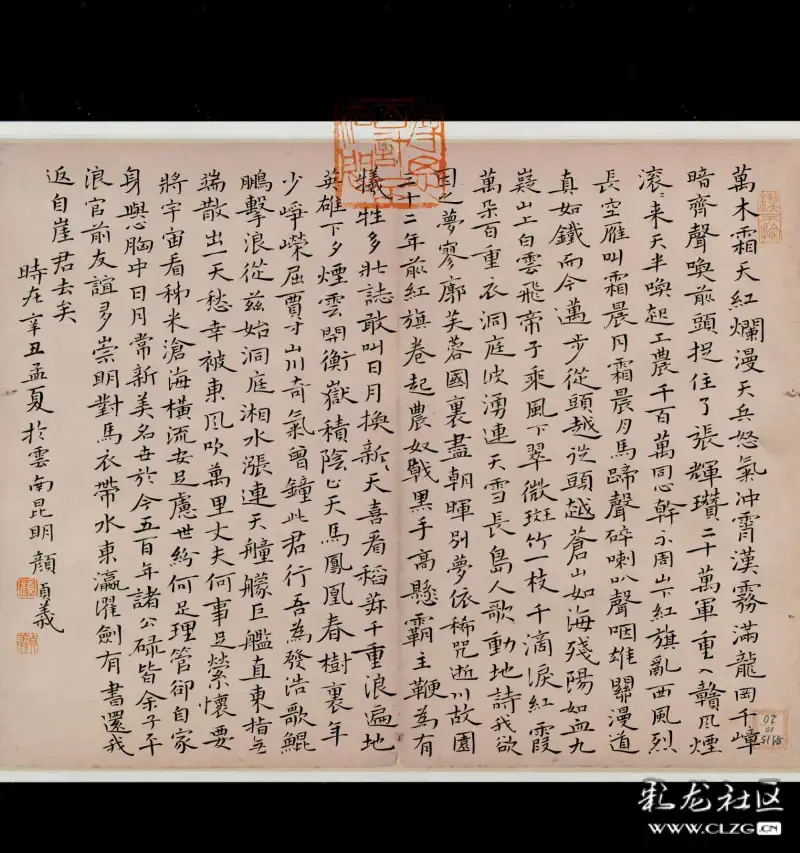 萬木霜天紅爛漫天兵怒氣沖霄漢霧滿龍岡千嶂
暗齊聲喚前頭捉住了張輝瓚二十萬軍重入贛風煙
滾〻来天半喚起工農千百萬同心幹不周山下紅旗亂西風烈
長空雁叫霜晨月霜晨月馬蹄聲碎喇叭聲咽雄關漫道
真如鐵而今邁步從頭越從頭越蒼山如海殘陽如血九
嶷山上白雲飛帝子乘風下翠微斑竹一枝千滴淚紅霞
萬朵百重衣洞庭波湧連天雪長島人歌動地詩我欲
因之夢寥廓芙蓉國裏盡朝暉别夢依稀咒逝川故園
三十二年前紅旗卷起農奴戟黑手高懸霸主鞭為有
犧牲多壯誌敢叫日月換新天喜看稻菽千重浪遍地
英雄下夕煙雲開衡嶽積陰止天馬鳳凰春樹裏年
少崢嶸屈賈才山川奇氣曾鐘此君行吾為發浩歌鯤
鵬擊浪從兹始洞庭湘水漲連天艟艨巨艦直東指無
端散出一天愁幸被東風吹萬里丈夫何事足縈懷要
將宇宙看稊米滄海橫流安足慮世紛何足理管卻自家
身與心胸中日月常新美名世於今五百年諸公碌皆余子平
浪官前友誼多崇明對馬衣帶水東瀛濯劍有書還我
返自崖君去矣
時在辛丑孟夏於雲南昆明顏貞義
彩龙社区
WWW.CLZG.CN